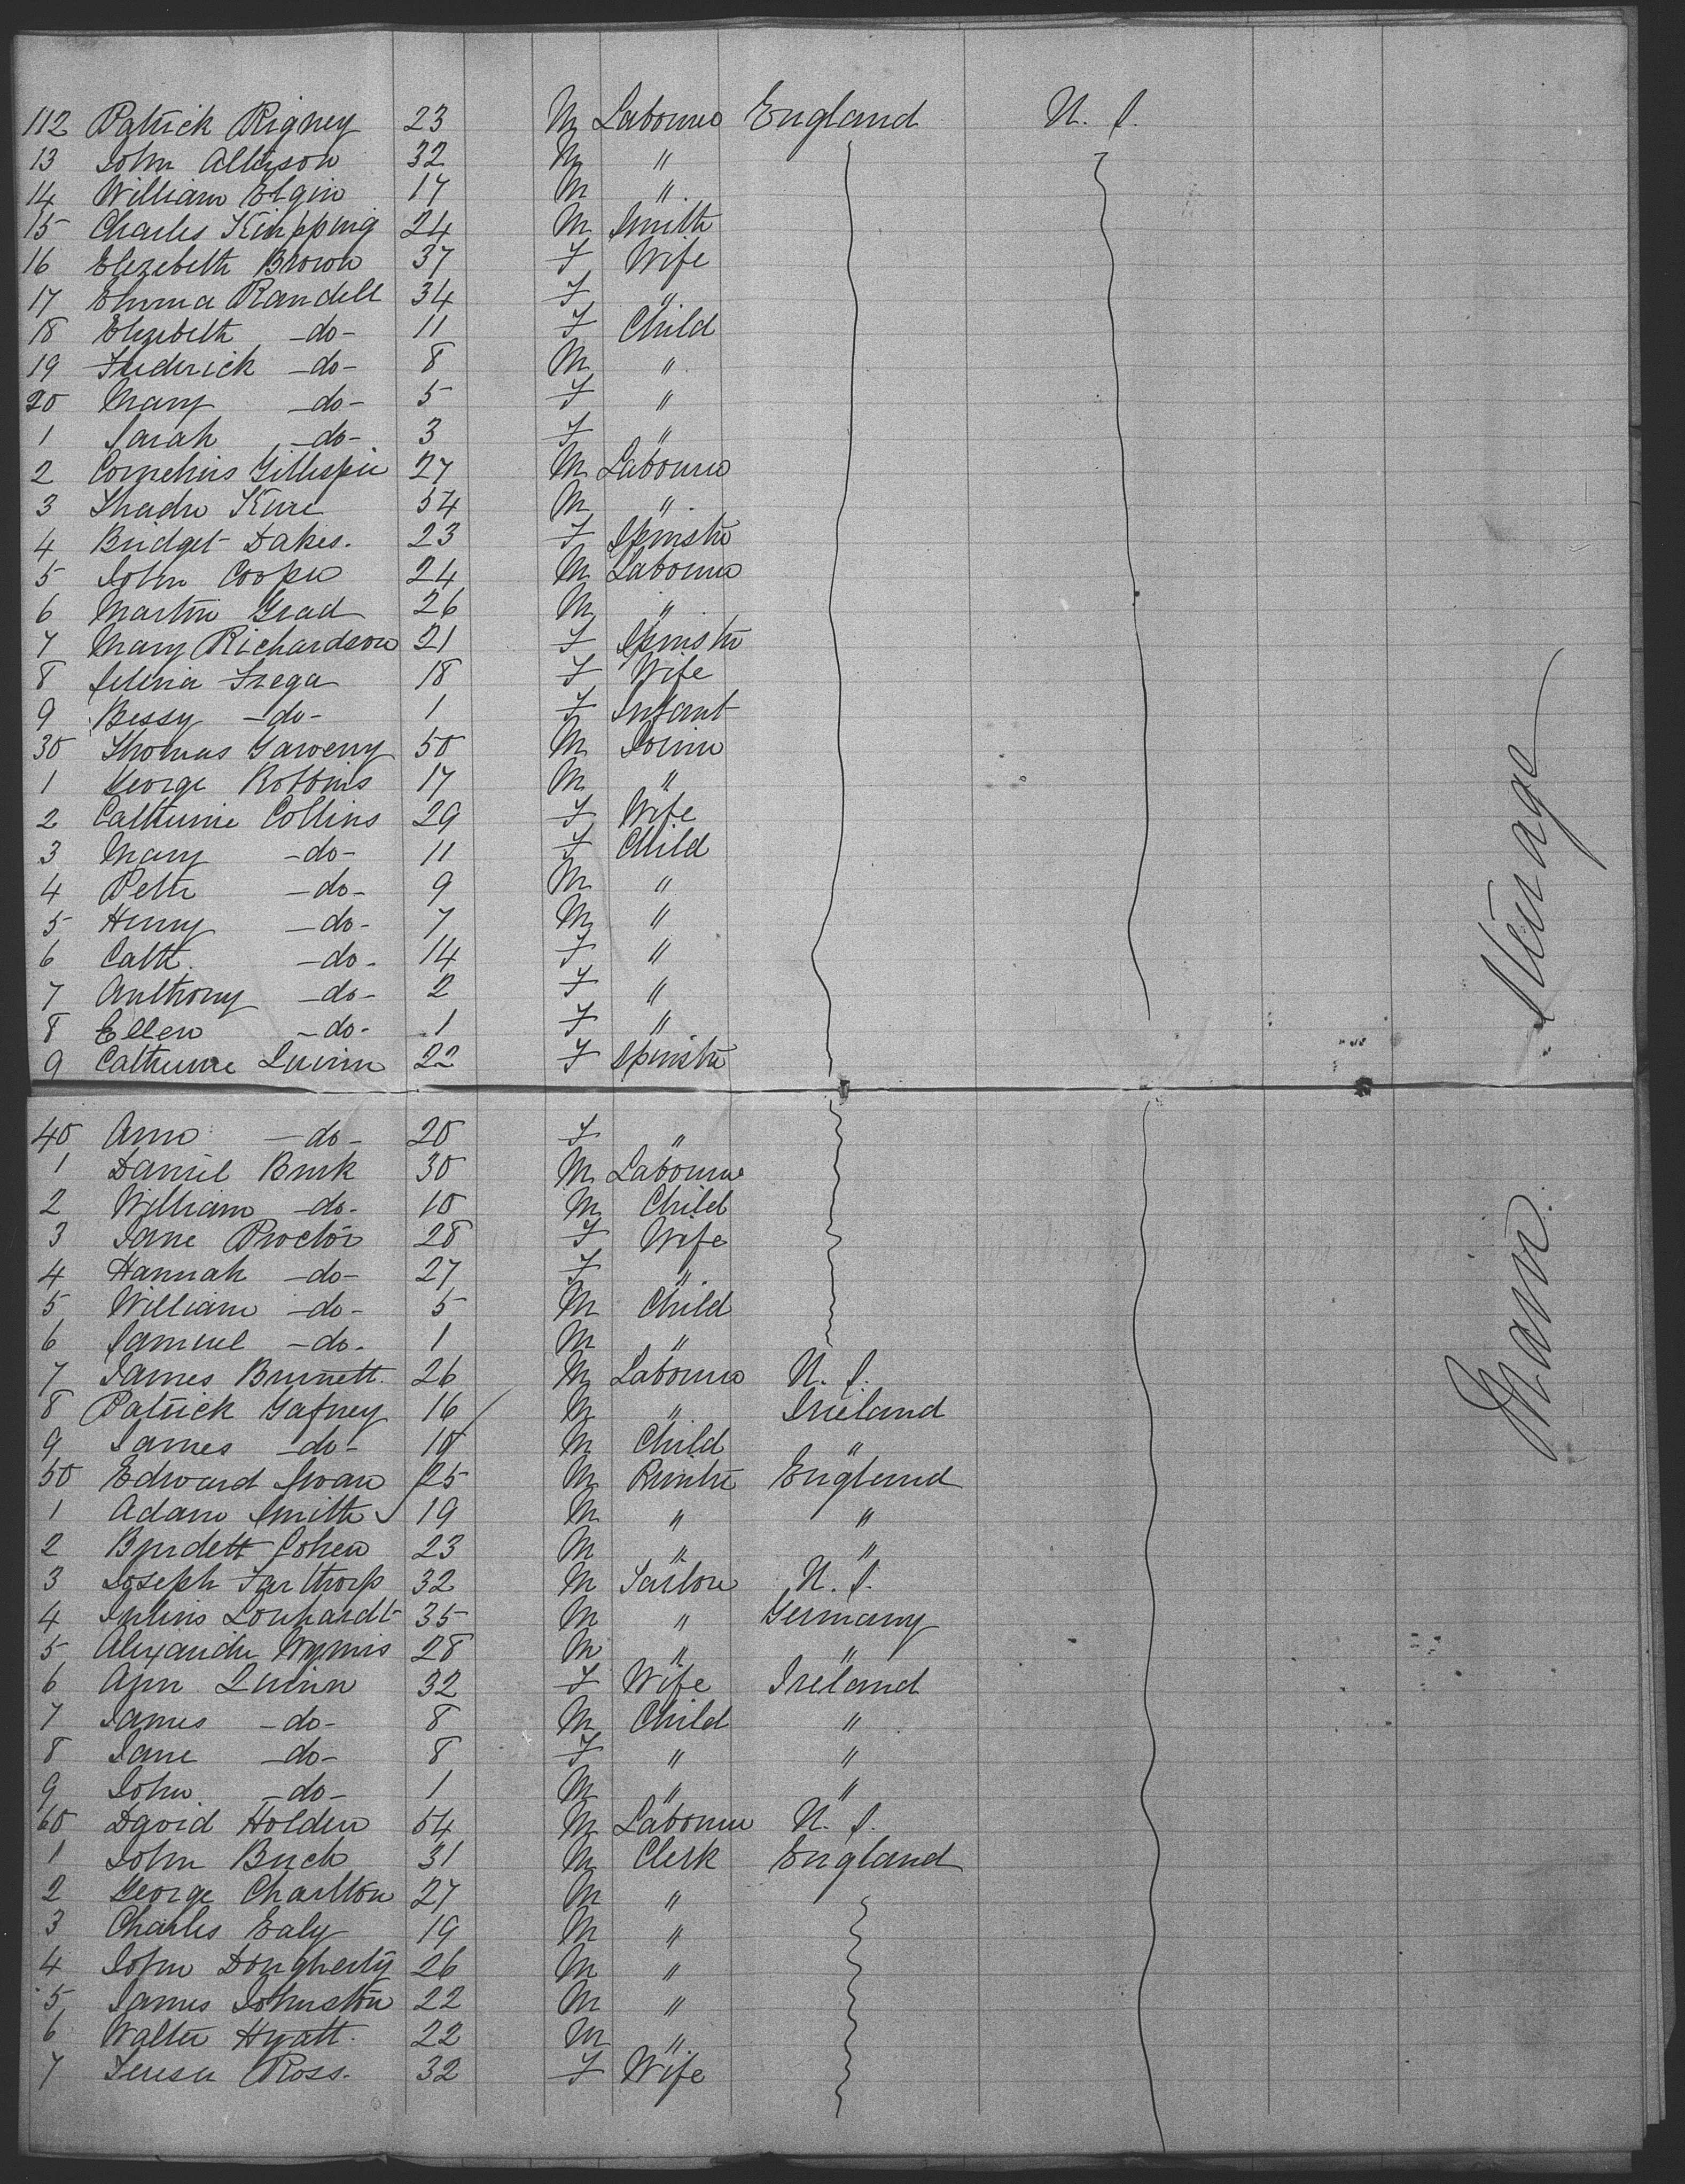 112 Patrick Rigney 23 M Labourer England U. S.
13 John Allison 32 M "
14 William Elgin 17 M "
15 Charles Kimpping 24 M Smith
16 Elizebeth Brown 37 F Wife
17 Emma Randell 34 F "
18 Elizebeth -do- 11 F Child
19 Frederick -do- 8 M "
20 Mary -do- 5 F "
1 Sarah -do- 3 F "
2 Cornelius Gillispie 27 M Labourer
3 54 M "
4 Bridget Dakes. 23 F Spinster
5 John Cooper 24 M Labourer
6 Martin Grad 26 M "
7 Mary Richardson 21 F Spinster
8 Selina Frega 18 F Wife
9 Bessy -do- 1 F Infant
30 Thomas Gaweny 50 M Joiner
1 George Robbins 17 M "
2 Catherine Collins 29 F Wife
3 Mary -do- 11 F Child
4 Peter -do- 9 M "
5 Henry -do- 7 M "
6 Cath. -do- 14 F "
7 Anthony -do- 2 F "
8 Ellen -do- 1 F "
9 Catherine Quinn 22 F Spinster
Steerage
40 Ann -do- 20 F "
1 Daniel Burk 30 M Labourer
2 William -do- 10 M Child
3 Jane Proctor 28 F Wife
4 Hannah -do- 27 F "
5 William -do- 5 M Child
6 Samuel -do- 1 M "
7 James Burnett. 26 M Labourer U. S.
8 Patrick Gafney 16 M " Ireland
9 James -do- 10 M Child "
50 Edward Swan 25 M Printer England
1 Adam Smith 19 M " "
2 Burdett Cohen 23 M " "
3 Joseph Farthorp 32 M Tailor U. S.
4 Julius Lonhardt 35 M " Germany
5 Alexander Wymis 28 M " "
6 Ann Quinn 32 F Wife Ireland
7 James -do- 8 M Child "
8 Jane -do- 8 F " "
9 John. -do- 1 M " "
60 David Holden 54 M Labourer U. S.
1 John Buck 31 M Clerk England
2 George Charlton 27 M "
3 Charles Ealy 19 M "
4 John Dougherty 26 M "
5 James Johnston 22 M "
6 Walter Hyatt. 22 M "
7 Teresa Ross. 32 F Wife
Main.